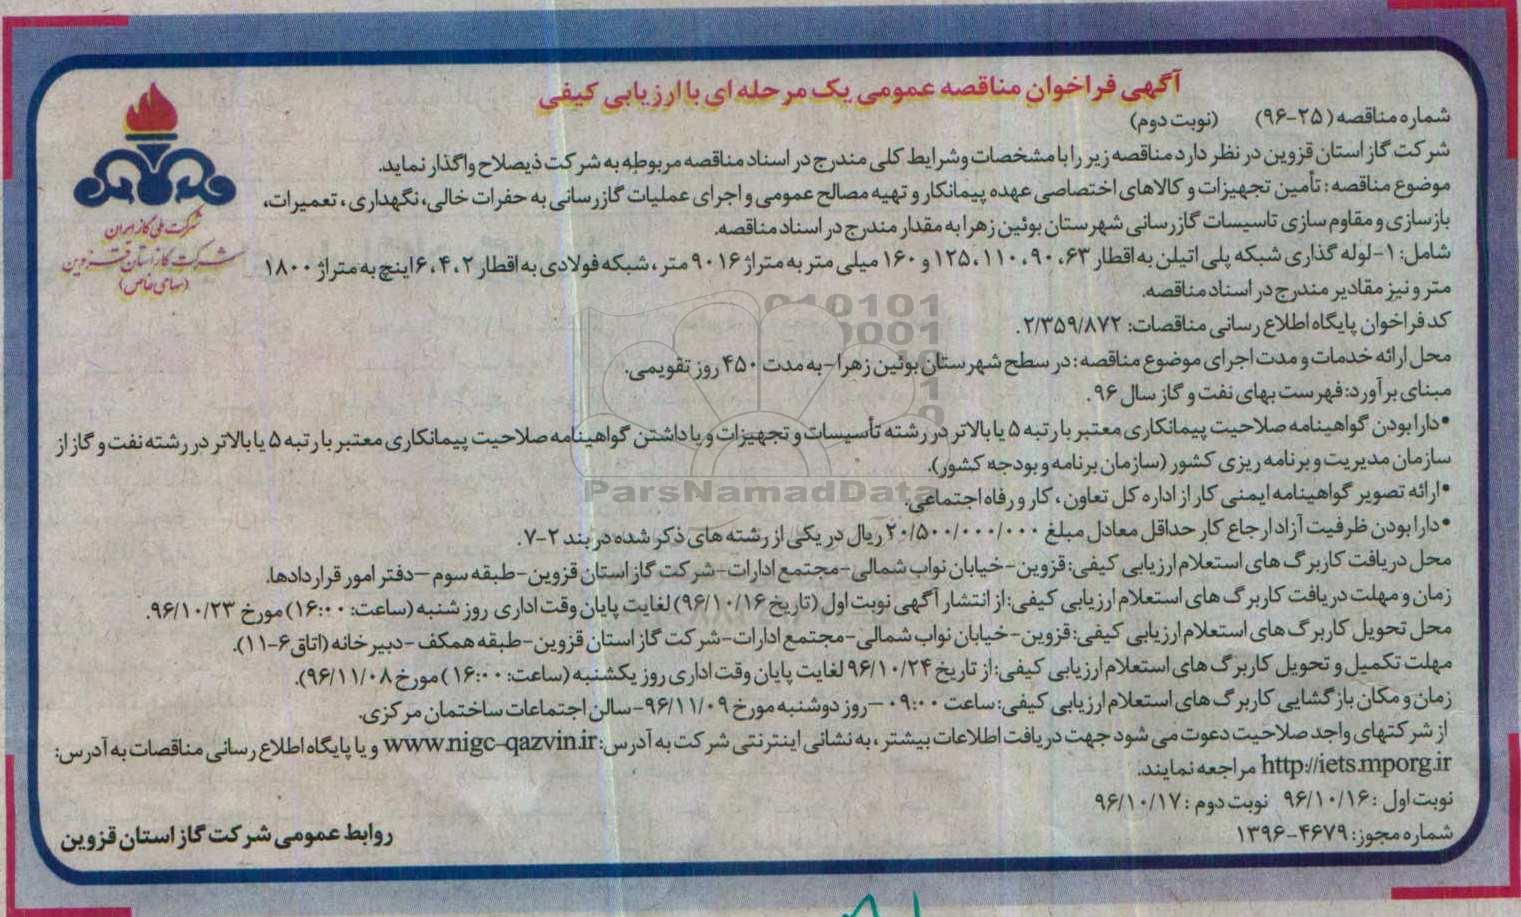 آگهی فراخوان مناقصه عمومی یک مرحله ای با ارزیابی کیفی
شماره مناقصه (۲۵-۹۶) (نوبت دوم)
شرکت گاز استان قزوین در نظر دارد مناقصه زیر را با مشخصات و شرایط کلی مندرج در اسناد مناقصه مربوطه به شرکت ذیصلاح واگذار نماید.
موضوع مناقصه: تأمین تجهیزات و کالاهای اختصاصی عهده پیمانکار و تهیه مصالح عمومی و اجرای عملیات گازرسانی به حفرات خالی، نگهداری، تعمیرات،
بازسازی و مقاوم سازی تاسیسات گازرسانی شهرستان بوئین زهرا به مقدار مندرج در اسناد مناقصه.
شامل: ۱-لوله گذاری شبکه پلی اتیلن به اقطار ۶۳، ۹۰، ۱۱۰، ۱۲۵ و ۱۶۰ میلی متر به متراژ ۹۰۱۶ متر، شبکه فولادی به اقطار ۲، ۴، ۶ اینچ به متراژ ۱۸۰۰
متر و نیز مقادیر مندرج در اسناد مناقصه.
کد فراخوان پایگاه اطلاع رسانی مناقصات: ۲/۳۵۹/۸۷۲.
محل ارائه خدمات و مدت اجرای موضوع مناقصه: در سطح شهرستان بوئین زهرا-به مدت ۴۵۰ روز تقویمی.
مبنای برآورد: فهرست بهای نفت و گاز سال ۹۶.
•دارا بودن گواهینامه صلاحیت پیمانکاری معتبر با رتبه ۵ یا بالاتر در رشته تأسیسات و تجهیزات و یا داشتن گواهینامه صلاحیت پیمانکاری معتبر با رتبه ۵ یا بالاتر در رشته نفت و گاز از
سازمان مدیریت و برنامه ریزی کشور (سازمان برنامه و بودجه کشور).
•ارائه تصویر گواهینامه ایمنی کار از اداره کل تعاون، کار و رفاه اجتماعی.
•دارا بودن ظرفیت آزاد ارجاع کار حداقل معادل مبلغ ۲۰/۵۰۰/۰۰۰/۰۰۰ ریال در یکی از رشته های ذکر شده در بند ۲-۷.
محل دریافت کاربرگ های استعلام ارزیابی کیفی: قزوین-خیابان نواب شمالی-مجتمع ادارات-شرکت گاز استان قزوین-طبقه سوم-دفتر امور قراردادها.
زمان و مهلت دریافت کاربرگ های استعلام ارزیابی کیفی: از انتشار آگهی نوبت اول (تاریخ ۹۶/۱۰/۱۶) لغایت پایان وقت اداری روز شنبه (ساعت: ۱۶:۰۰) مورخ ۹۶/۱۰/۲۳.
محل تحویل کاربرگ های استعلام ارزیابی کیفی: قزوین-خیابان نواب شمالی-مجتمع ادارات-شرکت گاز استان قزوین-طبقه همکف-دبیرخانه (اتاق ۶-۱۱).
مهلت تکمیل و تحویل کاربرگ های استعلام ارزیابی کیفی: از تاریخ ۹۶/۱۰/۲۴ لغایت پایان وقت اداری روز یکشنبه (ساعت: ۱۶:۰۰) مورخ ۹۶/۱۱/۰۸).
زمان و مکان بازگشایی کاربرگ های استعلام ارزیابی کیفی: ساعت ۰۹:۰۰-روز دوشنبه مورخ ۹۶/۱۱/۰۹-سالن اجتماعات ساختمان مرکزی.
از شرکتهای واجد صلاحیت دعوت می شود جهت دریافت اطلاعات بیشتر، به نشانی اینترنتی شرکت به آدرس: www.nigc-qazvin.ir و یا پایگاه اطلاع رسانی مناقصات به آدرس:
http://iets.mporg.ir مراجعه نمایند.
نوبت اول: ۹۶/۱۰/۱۶ نوبت دوم: ۹۶/۱۰/۱۷
شماره مجوز: ۴۶۷۹-۱۳۹۶
روابط عمومی شرکت گاز استان قزوین
شرکت ملی گاز ایران
شرکت گاز استان قزوین
(سهامی خاص)
ParsNamadData